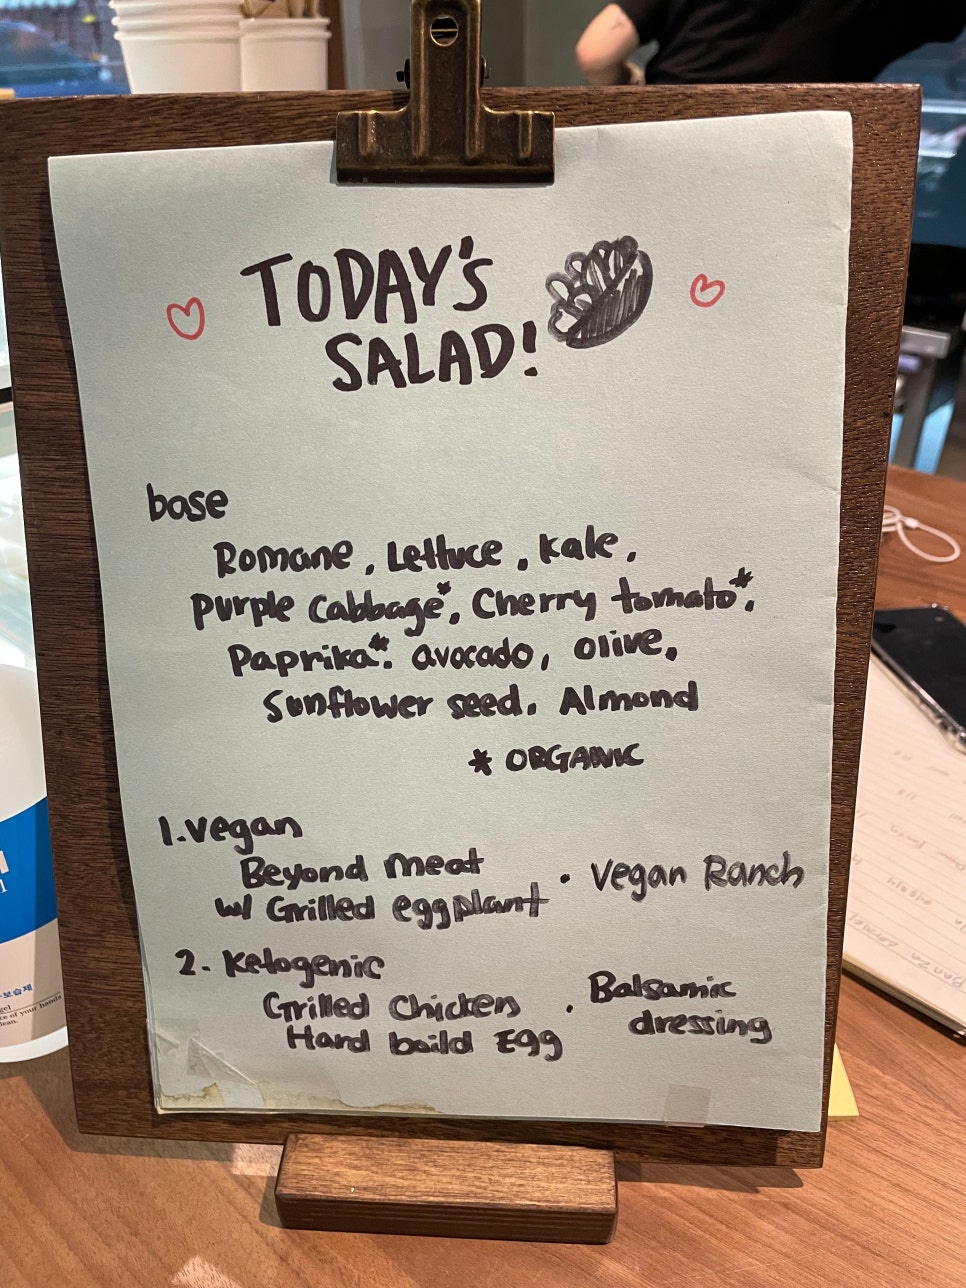 TODAY'S
SALAD!
base
Romane, Lettuce, kale,
purple cabbage*, Cherry tomato*,
Paprika*. avocado, olive,
Sunflower seed. Almond
* ORGANIC
1. Vegan
Beyond meat
w/ Grilled eggplant
· Vegan Ranch
2. Ketogenic
Grilled Chicken
Hard boild Egg
· Balsamic
dressing
보습제
gel
ce of your hands
lean.